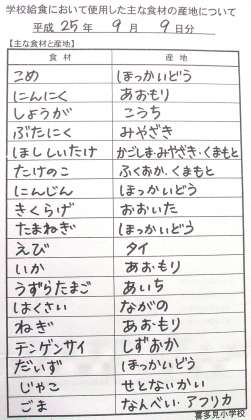 学校給食において使用した主な食材の産地について
平成 25年 9月 9日分
【主な食材と産地】
食材 産地
こめ ほっかいどう
にんにく あおもり
しょうが こうち
ぶたにく みやざき
ほししいたけ かごしま・みやざき・くまもと
たけのこ ふくおか・くまもと
にんじん ほっかいどう
きくらげ おおいた
たまねぎ ほっかいどう
えび タイ
いか あおもり
うずらたまご あいち
はくさい ながの
ねぎ あおもり
チンゲンサイ しずおか
だいず ほっかいどう
じゃこ せとないかい
ごま なんべい・アフリカ
喜多見小学校